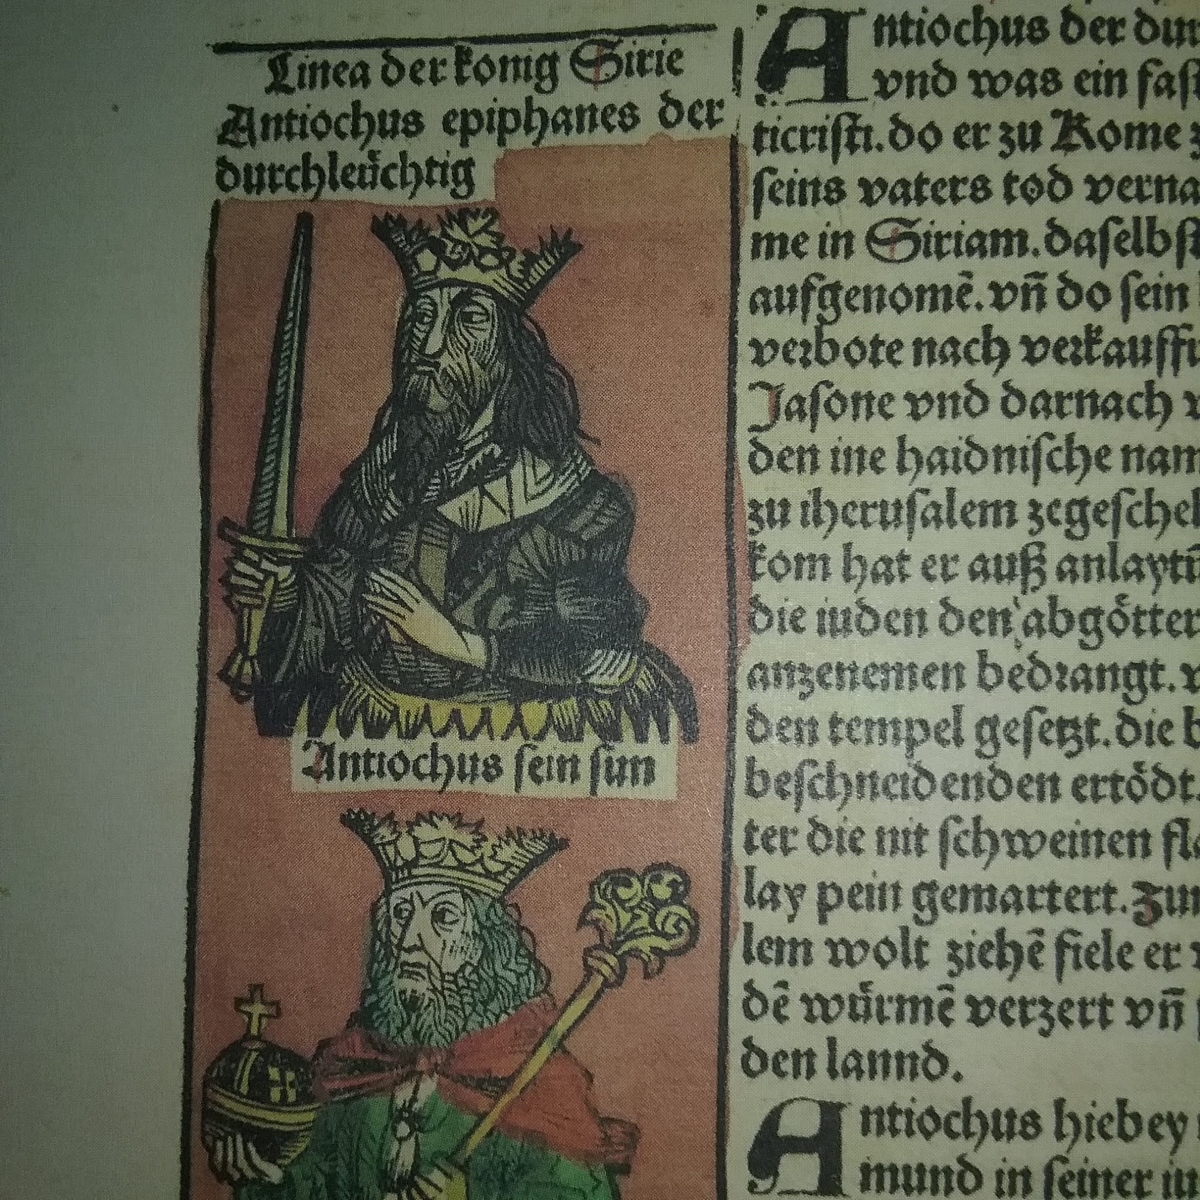 Linea der konig Sirie
Antiochus epiphanes der
durchleüchtig
Antiochus sein sun
Antiochus der dur
vnd was ein fas
ticristi. do er zu Rome z
seins vaters tod verna
me in Siriam. daselbst
aufgenomē. vn̄ do sein
verbote nach verkauffu
Jasone vnd darnach v
den ine haidnische nam
zu iherusalem zegescheh
kom hat er auß anlaytu
die iuden den abgötter
anzenemen bedrangt. v
den tempel gesetzt. die b
beschneidenden ertödt.
ter die nit schweinen fla
lay pein gemartert. Zum
lem wolt ziehē fiele er v
dē würmē verzert vn̄
den lannd.
Antiochus hiebey
mund in seiner iu